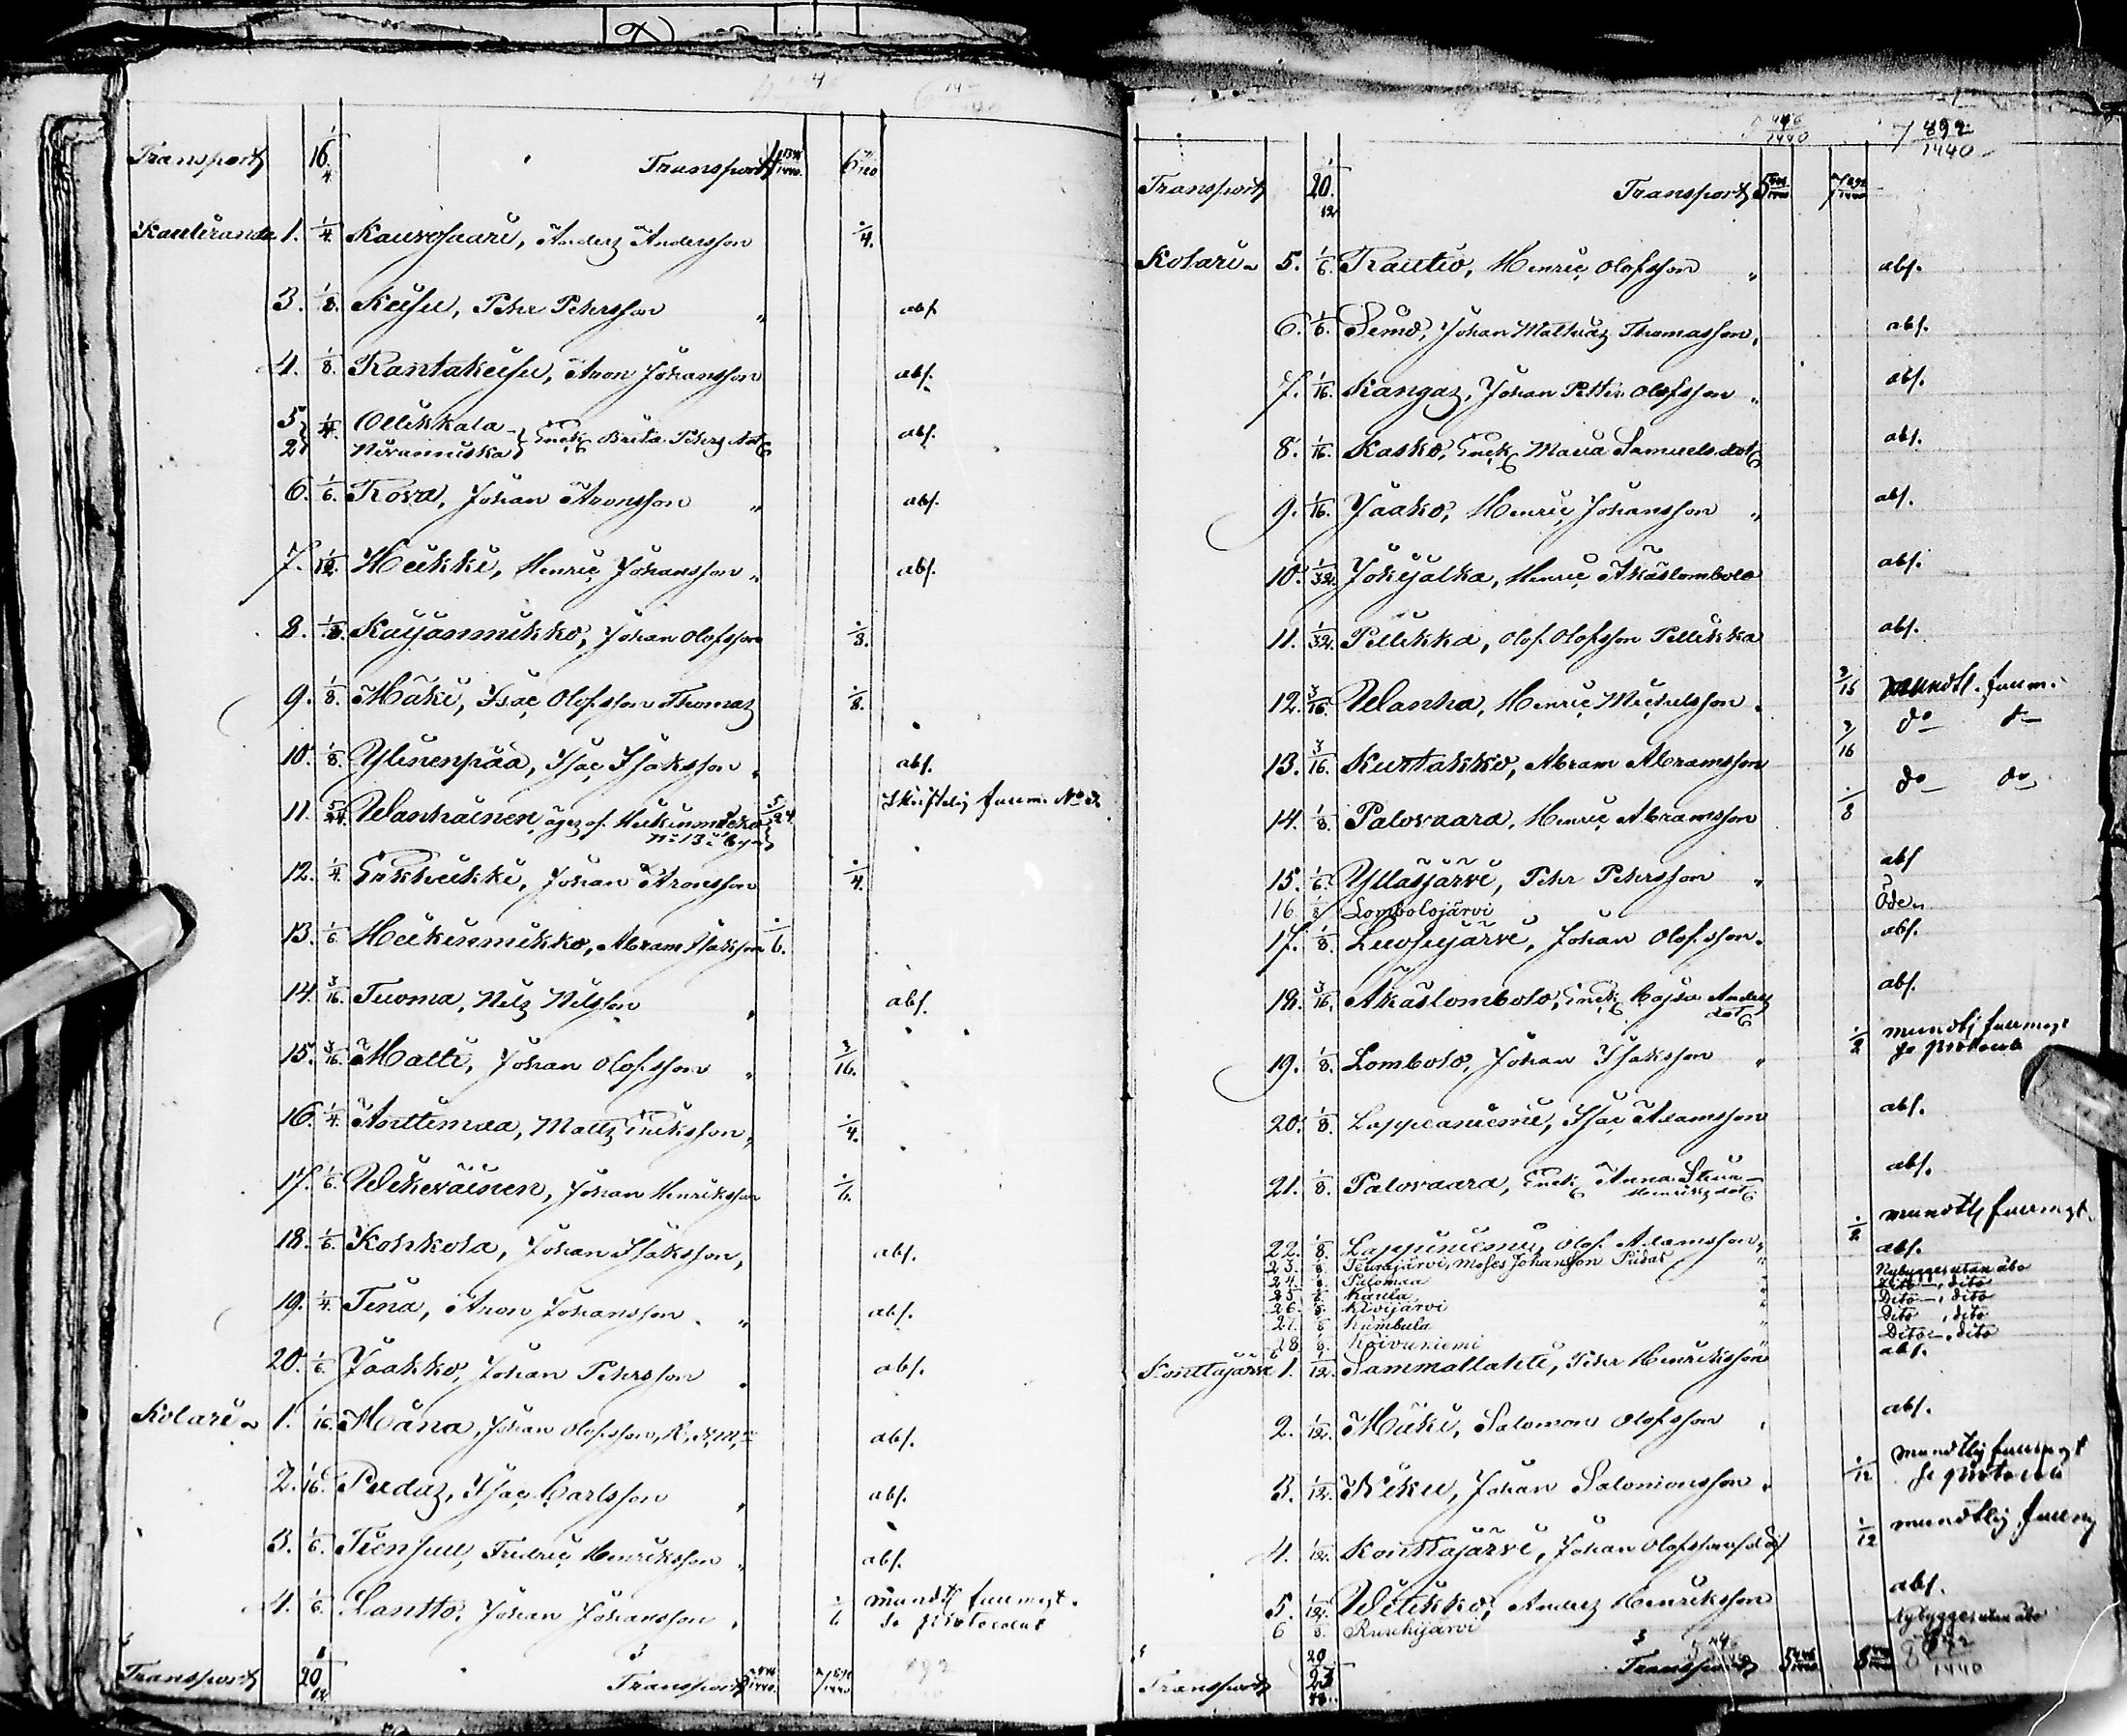 Transport 16 1/4 Transport 6
Kautiranda 1. 1/4. Kauvosaari, Anders Andersson 1/4.
3. 1/8. Keisu, Pehr Pehrsson " abs.
4. 1/8. Rantakeisu, Aron Johansson abs.
5 1/4. Ollikkala
2 Nivanniska Enck. Brita Pehrs dot. abs.
6. 1/6. Rova, Johan Aronsson " abs.
7. 1/12. Heikki, Henric Johansson " abs.
8. 1/8. Kaijanmikko, Johan Olofsson 1/8.
9. 1/8. Mäki, Isac Olofsson Thomas 1/8.
10. 1/8. Ylinenpää, Isac Isaksson " abs.
11. 5/24. Wanhainen, äges af Heikinmikko 5/24 Skriftelig fullm. No 2
No 13 i byn
12. 1/4. Erkheikki, Johan Aronsson 1/4.
13. 1/6. Heikinmikko, Abram Isaksson 1/6.
14. 3/16. Tuoma, Nils Nilsson " abs.
15. 3/16. Matti, Johan Olofsson " 3/16.
16. 1/4. Anttimaa, Matts Eriksson " 1/4.
17. 1/6. Wikeväinen, Johan Henriksson 1/6.
18. 1/6. Kohkola, Johan Isaksson " abs.
19. 1/4. Tina, Aron Johansson " abs.
20. 1/6. Jaakko, Johan Pehrsson " abs.
Kolari 1. 1/16. Måna, Johan Olofsson, abs.
2. 1/16. Pudas, Isac Carlsson " abs.
3. 1/6. Tiensuu, Fredric Henriksson " abs.
4. 1/6. Lantto, Johan Johansson " 1/6 mundtl. fullmagt.
se protocoll
Transport 20 1/12 Transport
7 892/1440
Transport 20. 1/12 Transport
Kolari 5. 1/6. Rautio, Henric Olofsson " abs.
6. 1/6. Simo, Johan Mathias Thomasson " abs.
7. 1/16. Kangas, Johan Petter Olofsson " abs.
8. 1/16. Kasko, Enck. Maria Samuelsdot. abs.
9. 1/16. Jaako, Henric Johansson " abs.
10. 1/32. Jokijalka, Henric Äkäslombolo abs.
11. 1/32. Pillikka, Olof Olofsson Pillikka abs.
12. 3/16. Wanha, Henric Michelsson " 3/16 mundtl. fullm.
13. 3/16. Kurtakko, Abram Abramsson 3/16 do do
14. 1/8. Palovaara, Henric Abramsson 1/8 do do
15. 1/6. Ylläsjärvi, Pehr Pehrsson " abs
16 1/8 Lombolojärvi Öde
17. 1/8. Luosujärvi, Johan Olofsson. abs.
18. 3/16. Äkäslombolo, Enck. Cajsa Anders dot. abs.
19. 1/8. Lombolo, Johan Isaksson " 1/2 mundtl. fullmagt
se protocoll
20. 1/8. Lappeaniemi, Isac Adamsson abs.
21. 1/8. Palovaara, Enck. Anna Stina
Henriks dot. abs.
22. 1/8. Lappiniemi, Olof Adamsson " 1/2 mundtl. fullmagt.
23. 1/8. Teurajärvi, Moses Johansson Pudas " abs.
24. 1/8. Pilomaa " Nybygges utan åbo
25. 1/8. Kaula " Dito dito
26. 1/8. Kivijärvi " Dito dito
27. 1/8. Kumbula " Dito dito
28. 1/8. Koivuniemi " Dito dito
Konttajärvi 1. 1/12. Sammallahti, Pehr Henriksson abs.
2. 1/12. Mäki, Salomon Olofsson " abs.
3. 1/12. Niku, Johan Salomonsson " 1/12 mundtlig fullmagt
se protocoll
4. 1/12. Konttajärvi, Johan Olofsson 1/12 mundtlig fullm.
5. 1/12. Wilikko, Anders Henriksson abs.
6 1/8. Ruuhijärvi Nybygges utan åbo
Transport 23 Transport